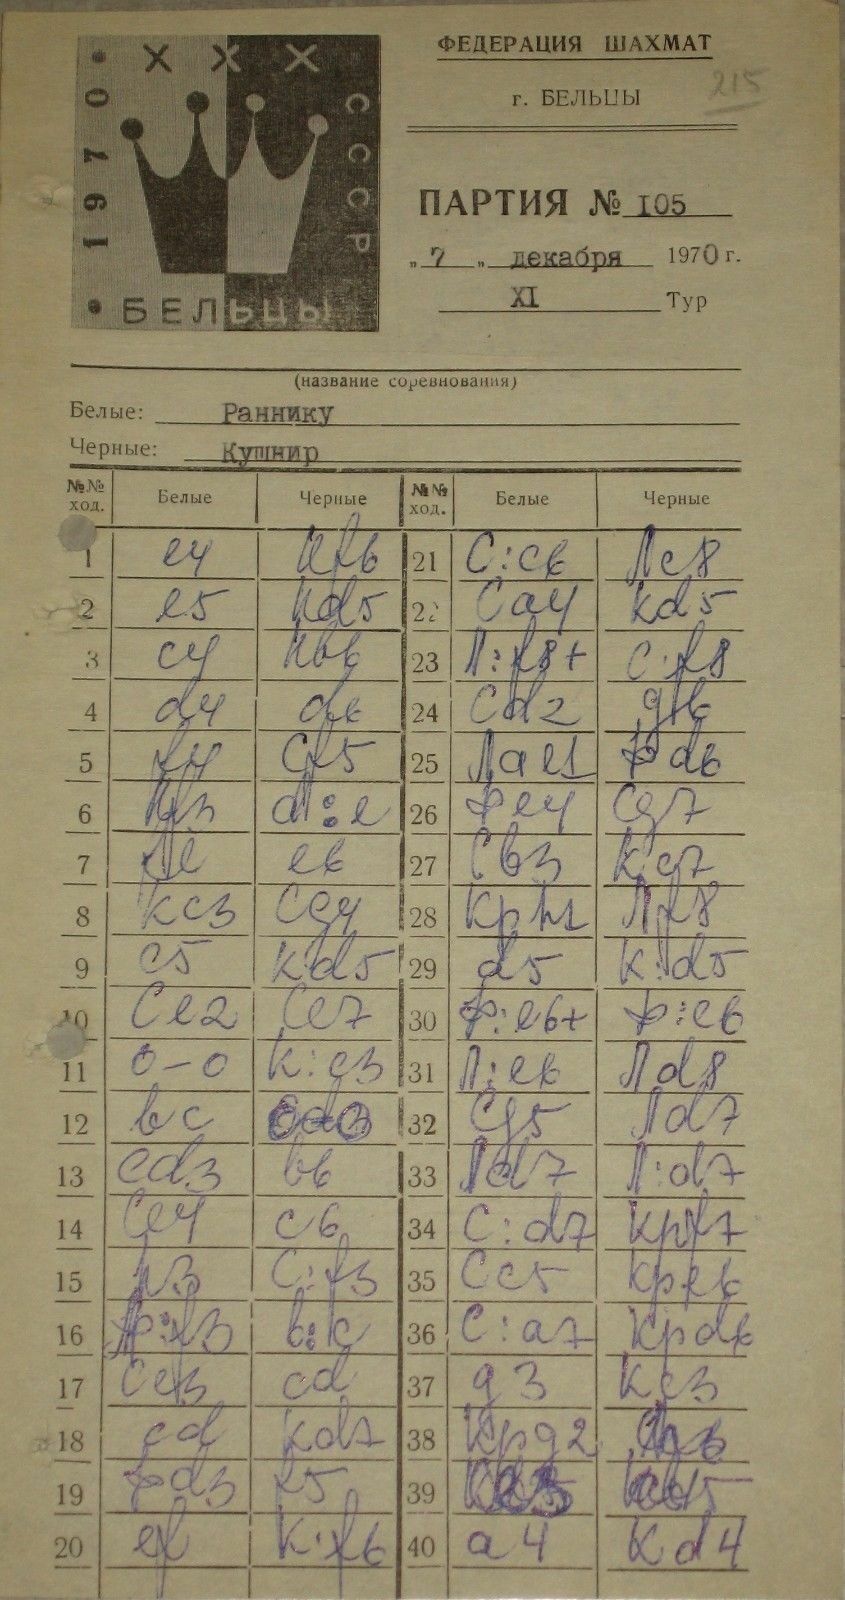 ФЕДЕРАЦИЯ ШАХМАТ
г. БЕЛЬЦЫ
215
1970 • X X X СССР
• БЕЛЬЦЫ
ПАРТИЯ № 105
„ 7 „ декабря 1970 г.
XI Тур
(название соревнования)
Белые: Раннику
Черные: Кушнир
№№ ход. Белые Черные №№ ход. Белые Черные
1 e4 Kf6 21 C:c6 Лc8
2 e5 Kd5 22 Ca4 Kd5
3 c4 Kb6 23 Л:f8+ C:f8
4 d4 d6 24 Cd2 g6
5 f4 Cf5 25 Лae1 Фd6
6 Kf3 d:e 26 Фe4 Cg7
7 fe e6 27 Cb3 Kc7
8 Kc3 Cg4 28 Kph1 Лf8
9 c5 Kd5 29 d5 K:d5
10 Ce2 Ce7 30 Ф:e6+ Ф:e6
11 0-0 K:c3 31 Л:e6 Лd8
12 bc 0-0 32 Cg5 Лd7
13 Cd3 b6 33 Лd7 Л:d7
14 Ce4 c6 34 C:d7 Kpf7
15 h3 C:f3 35 Cc5 Kpe6
16 Ф:f3 b:c 36 C:a7 Kpd6
17 Ce3 cd 37 g3 Kc3
18 cd Kd7 38 Kpg2
19 Фd3 f5 39
20 ef K:f6 40 a4 Kd4